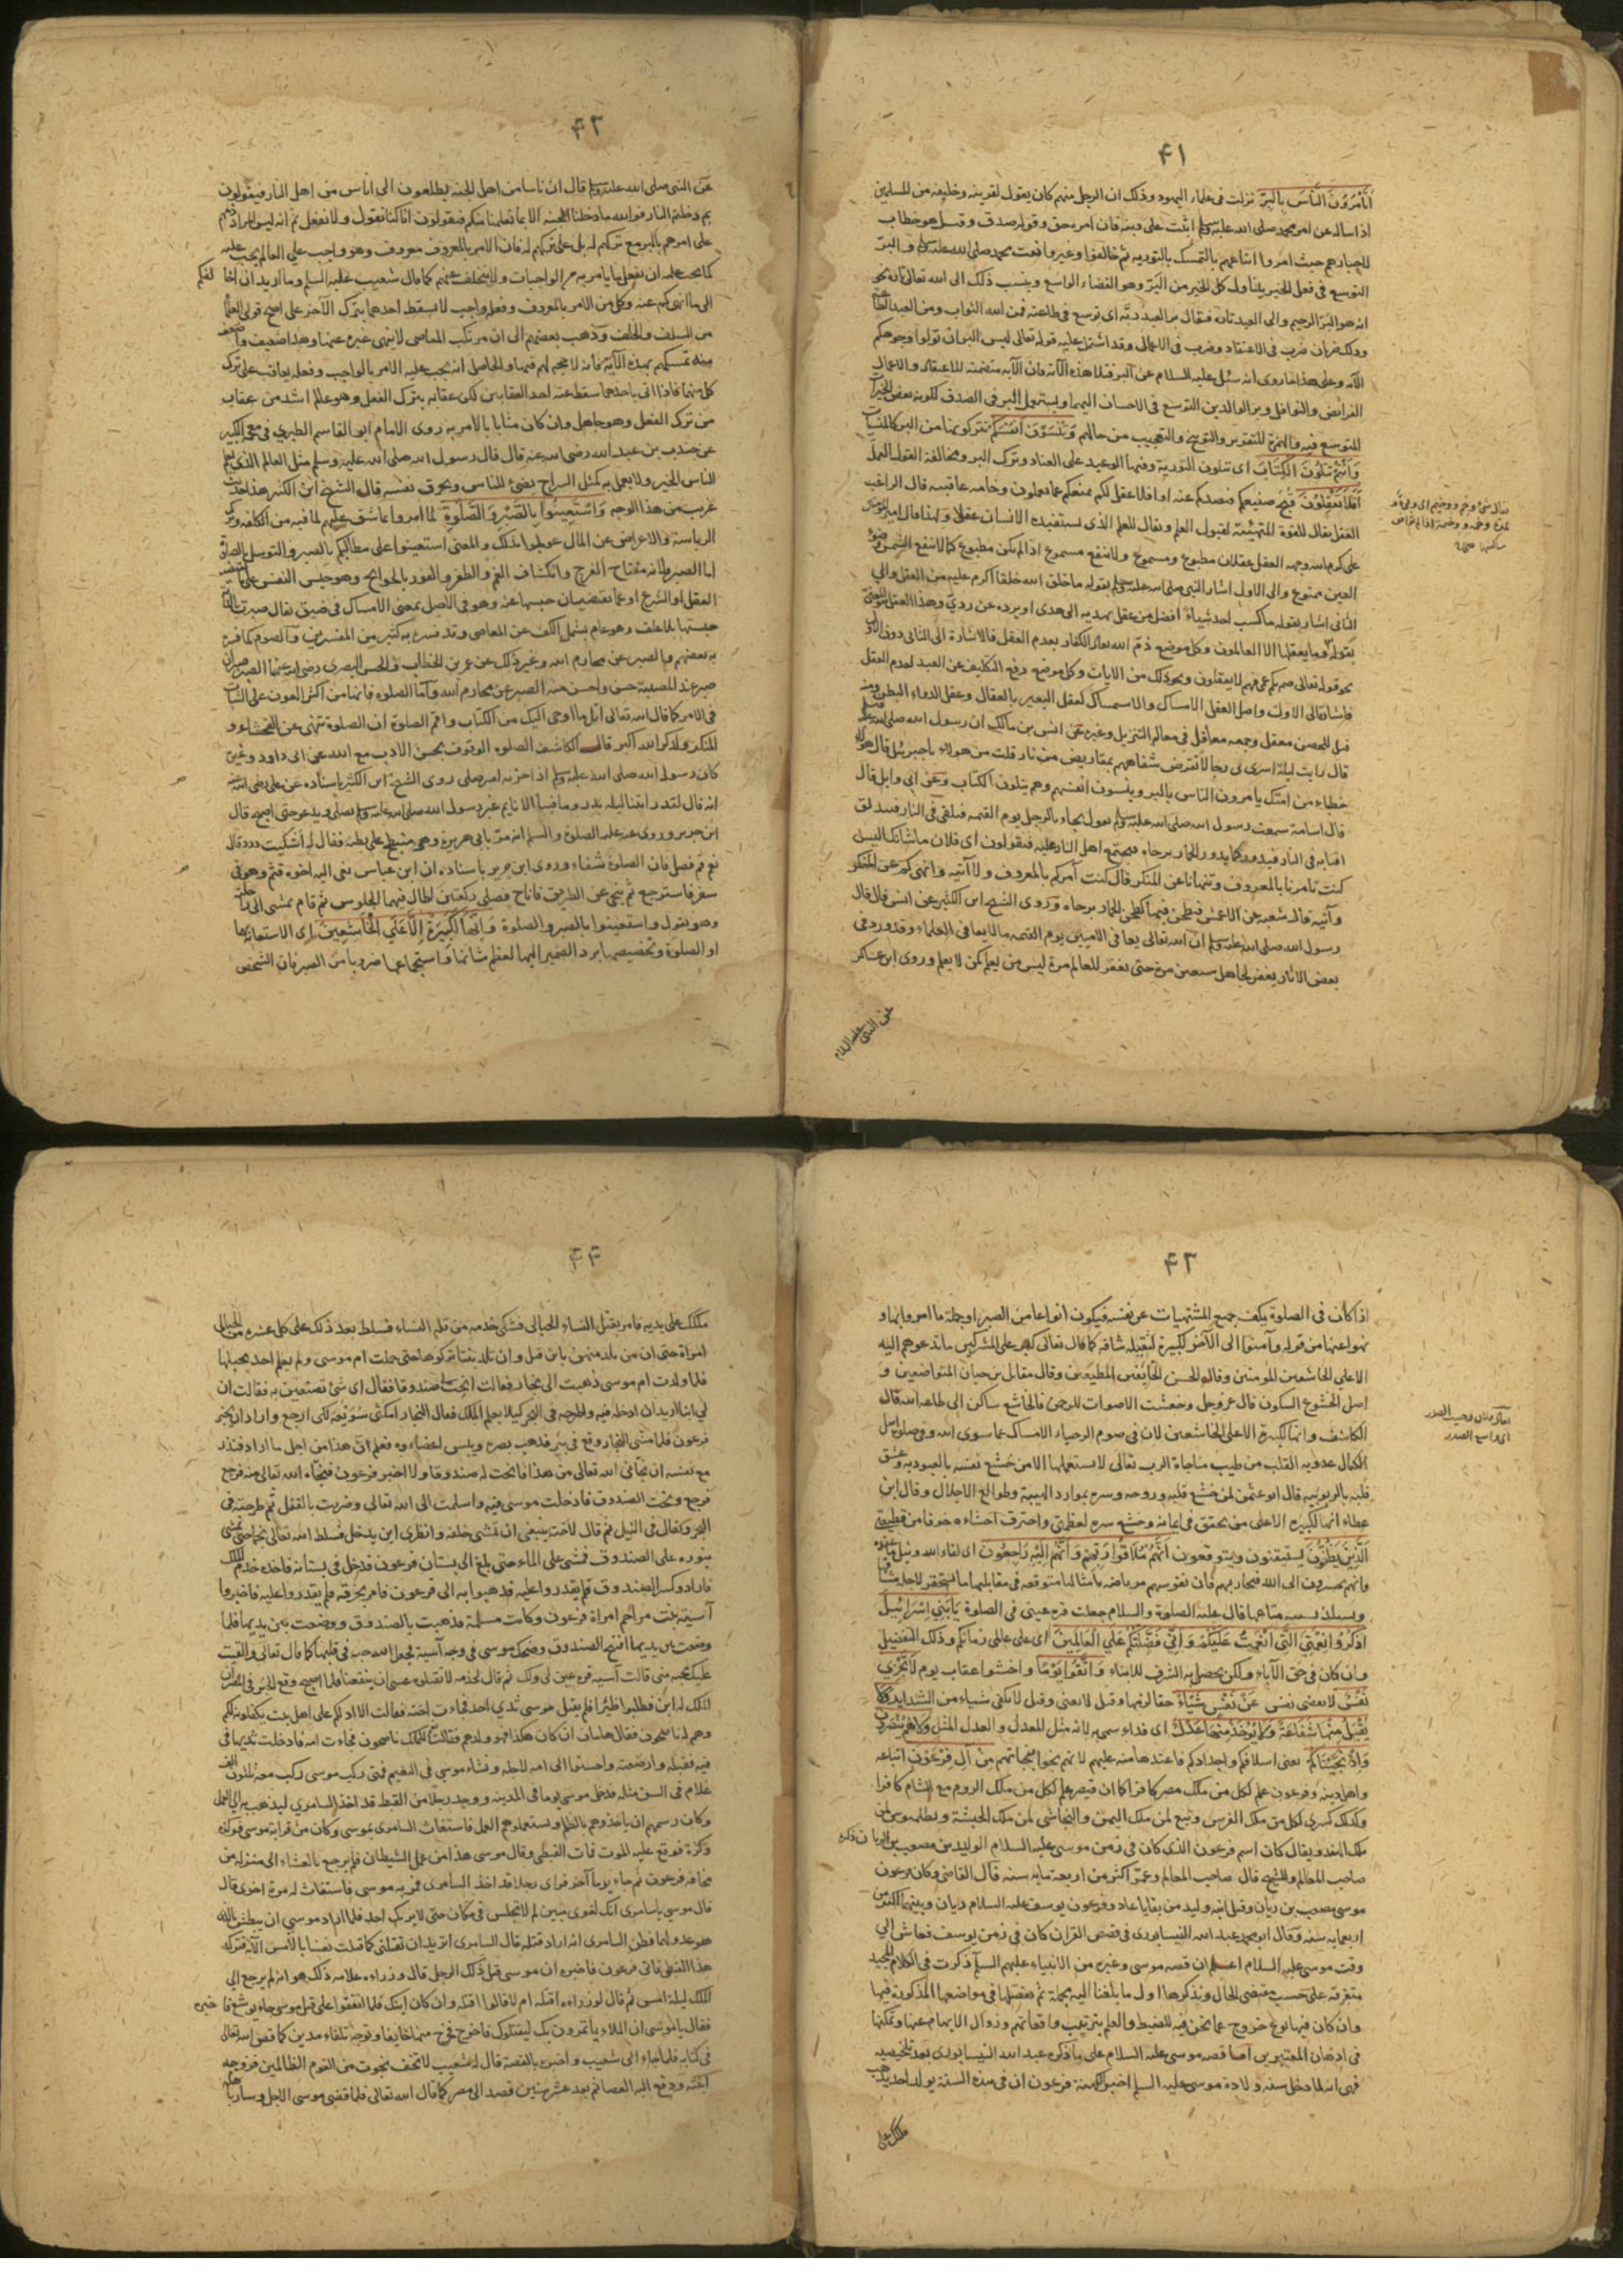 ۴۱
أَتَأْمُرُونَ النَّاسَ بِالْبِرِّ نزلت فى علماء اليهود وذلك ان الرجل منهم كان يقول لقرينه وحليفه من المسلمين
اذا ساله عن امر محمد صلى الله عليه وسلم اثبت على دينه فان امره حق وقوله صدق وقيل هو خطاب
لاحبارهم حيث امروا اتباعهم بالتمسك بالتورية ثم خالفوا وغيروا نعت محمد صلى الله عليه وسلم والبر
التوسع فى فعل الخير يتناول كل الخير من البر وهو الفضاء الواسع وينسب ذلك الى الله تعالى تارة نحو
انه هو البر الرحيم والى العبد تارة فيقال بر العبد ربه اى توسع فى طاعته فمن الله الثواب ومن العبد الطاعة
وذلك ضربان ضرب فى الاعتقاد وضرب فى الاعمال وقد اشتمل عليه قوله تعالى ليس البر ان تولوا وجوهكم
الآية وعلى هذا ما روى انه سئل عليه السلام عن البر فتلا هذه الآية فان الآية متضمنة للاعتقاد والاعمال
الفرائض والنوافل وبر الوالدين التوسع فى الاحسان اليهما ويستعمل البر فى الصدق لكونه بعض الخيرات
للتوسع فيه والهمزة للتقرير والتوبيخ والتعجيب من حالهم وَتَنْسَوْنَ أَنْفُسَكُمْ تتركونها من البر كالمنسيات
وَأَنْتُمْ تَتْلُونَ الْكِتَابَ اى تتلون التورية وفيها الوعيد على العناد وترك البر ومخالفة القول العمل
أَفَلَا تَعْقِلُونَ قبح صنيعكم فيصدكم عنه او افلا عقل لكم يمنعكم عما تعملون وخامة عاقبته قال الراغب
العقل يقال للقوة المتهيئة لقبول العلم ويقال للعلم الذى يستفيده الانسان عقلا ولهذا قال امير المؤمنين
على كرم الله وجهه العقل عقلان مطبوع ومسموع ولا ينفع مسموع اذا لم يكن مطبوع كما لا ينفع الشمس وضوء
العين ممنوع والى الاول اشار النبى صلى الله عليه وسلم بقوله ما خلق الله خلقا اكرم عليه من العقل والى
الثانى اشار بقوله ما كسب احد شيئا افضل من عقل يهديه الى هدى او يرده عن ردى وهذا العقل هو المعنى
بقوله وما يعقلها الا العالمون وكل موضع ذم الله تعالى الكفار بعدم العقل فالاشارة الى الثانى دون الاول
نحو قوله تعالى صم بكم عمى فهم لا يعقلون ونحو ذلك من الايات وكل موضع رفع التكليف عن العبد لعدم العقل
فاشارة الى الاول واصل العقل الامساك والاستمساك كعقل البعير بالعقال وعقل الدواء البطن ومنه
قيل للحصن معقل وجمعه معاقل فى معالم التنزيل وغيره عن انس بن مالك ان رسول الله صلى الله عليه
قال رايت ليلة اسرى بى رجالا تقرض شفاههم بمقاريض من نار قلت من هؤلاء يا جبرئيل قال هؤلاء
خطباء من امتك يامرون الناس بالبر وينسون انفسهم وهم يتلون الكتاب وعن ابى وايل قال
قال اسامة سمعت رسول الله صلى الله عليه وسلم يقول يجاء بالرجل يوم القيمة فيلقى فى النار فتندلق
اقتابه فى النار فيدور كما يدور الحمار برحاه فيجتمع اهل النار عليه فيقولون اى فلان ما شانك اليس
كنت تامرنا بالمعروف وتنهانا عن المنكر قال كنت آمركم بالمعروف ولا آتيه وانهيكم عن المنكر
وآتيه قال شعبة عن الاعمش فيطحن فيها كطحن الحمار برحاه وروى الشيخ ابن الكثير عن انس قال قال
رسول الله صلى الله عليه وسلم ان الله تعالى يعافى الاميين يوم القيمة ما لا يعافى العلماء وقد ورد فى
بعض الاثار يغفر للجاهل سبعين مرة حتى يغفر للعالم مرة ليس من يعلم كمن لا يعلم وروى ابن عساكر
عن النبى عليه السلام
۴۲
عن النبى صلى الله عليه وسلم قال ان ناسا من اهل الجنة يطلعون الى اناس من اهل النار فيقولون
بم دخلتم النار فوالله ما دخلنا الجنة الا بما تعلمنا منكم فيقولون انا كنا نقول ولا نفعل ثم انه ليس المراد ذمهم
على امرهم بالبر مع تركهم له بل على تركهم له فان الامر بالمعروف معروف وهو واجب على العالم يجب عليه
كما يجب عليه ان يفعل ما يامر به من الواجبات ولا يتخلف عنهم كما قال شعيب عليه السلم وما اريد ان اخالفكم
الى ما انهيكم عنه وكل من الامر بالمعروف وفعله واجب لا يسقط احدهما بترك الآخر على اصح قولى العلماء
من السلف والخلف وذهب بعضهم الى ان مرتكب المعاصى لا ينهى غيره عنها وهذا ضعيف واضعف
منه تمسكهم بهذه الآية فانه لا حجة لهم فيها والحاصل انه يجب عليه الامر بالواجب وفعله يعاقب على ترك
كل منهما فاذا اتى باحدهما سقط عنه احد العقابين لكن عقابه بترك الفعل وهو عالم اشد من عقاب
من ترك الفعل وهو جاهل وان كان مثابا بالامر به روى الامام ابو القاسم الطبرى فى معجمه الكبير
عن جندب بن عبد الله رضى الله عنه قال قال رسول الله صلى الله عليه وسلم مثل العالم الذى يعلم
الناس الخير ولا يعمل به كمثل السراج يضئ للناس ويحرق نفسه قال الشيخ ابن الكثير هذا حديث
غريب من هذا الوجه وَاسْتَعِينُوا بِالصَّبْرِ وَالصَّلٰوةِ لما امروا بما شق عليهم لما فيه من الكلفة وترك
الرياسة والاعراض عن المال عولجوا بذلك والمعنى استعينوا على مطالبكم بالصبر والتوسل بالصلوة
اما الصبر فلانه مفتاح الفرج وانكشاف الغم والظفر والفوز بالحوائج وهو حبس النفس على ما يقتضيه
العقل او الشرع او عما يقتضيان حبسها عنه وهو فى الاصل بمعنى الامساك فى ضيق يقال صبرت الدابة
حبستها بلا علف وهو عام يشمل الكف عن المعاصى وقد فسره به كثير من المفسرين والصوم كما فسره
به بعضهم والصبر عن محارم الله وغير ذلك عن عمر بن الخطاب والحسن البصرى رضى الله عنهما الصبر صبران
صبر عند المصيبة حسن واحسن منه الصبر عن محارم الله واما الصلوة فانها من اكثر العون على الثبات
فى الامر كما قال الله تعالى اتل ما اوحى اليك من الكتاب واقم الصلوة ان الصلوة تنهى عن الفحشاء و
المنكر ولذكر الله اكبر قال الكاشف الصلوة الوقوف بحسن الادب مع الله عن ابى داود وغيره
كان رسول الله صلى الله عليه وسلم اذا حزبه امر صلى روى الشيخ ابن الكثير باسناده عن على رضى الله عنه
انه قال لقد رايتنا ليلة بدر وما فينا الا نايم غير رسول الله صلى الله عليه وسلم يصلى ويدعو حتى اصبح قال
ابن جرير وروى عنه عليه الصلوة والسلم انه مر بابى هريرة وهو منبطح على بطنه فقال له اشكنب درد قال
نعم قم فصل فان الصلوة شفاء وروى ابن جرير باسناده ان ابن عباس نعى اليه اخوه قثم وهو فى
سفر فاسترجع ثم تنحى عن الطريق فاناخ فصلى ركعتين اطال فيهما الجلوس ثم قام يمشى الى راحلته
وهو يقول واستعينوا بالصبر والصلوة وَإِنَّهَا لَكَبِيرَةٌ إِلَّا عَلَى الْخَاشِعِينَ اى الاستعانة بها
او الصلوة وتخصيصها برد الضمير اليها لعظم شانها واستجماعها ضروبا من الصبر فان الشخص
۴۳
اذا كان فى الصلوة يكف جميع المشتهيات عن نفسه فيكون انواعا من الصبر او جملة ما امروا بها و
نهوا عنها من قوله وآمنوا الى الآخر لكبيرة لثقيلة شاقة كما قال تعالى كبر على المشركين ما تدعوهم اليه
الا على الخاشعين المومنين وقال الحسن الخائفين المطيعين وقال مقاتل بن حيان المتواضعين و
اصل الخشوع السكون قال عز وجل وخشعت الاصوات للرحمن فالخاشع ساكن الى طاعة الله قال
الكاشف وانها لكبيرة الا على الخاشعين لان فى صوم الرحياء الامساك عما سوى الله وفى صلوة اهل
الكمال عذوبة القلب من طيب مناجاة الرب تعالى لا يستعملها الا من خشع نفسه بالعبودية وعشق
قلبه بالربوبية قال ابو عثمن لمن خشع قلبه وروحه وسره بموارد الهيبة وطوالع الاجلال وقال ابن
عطاء انها لكبيرة الا على من تحقق فى ايمانه وخشع سره لعظمتى واحترق احشاءه خوفا من قطيعتى
الَّذِينَ يَظُنُّونَ يستيقنون ويتوقعون أَنَّهُمْ مُلَاقُوا رَبِّهِمْ وَأَنَّهُمْ إِلَيْهِ رَاجِعُونَ اى لقاء الله ونيل ما عنده
وانهم يحشرون الى الله فيجازيهم فان نفوسهم مرتاضة بامثالها متوقعة فى مقابلها ما يستحقر لاجله مشاقها
ويستلذ بسببه متاعبها قال عليه الصلوة والسلام جعلت قرة عينى فى الصلوة يَا بَنِي إِسْرَائِيلَ
اذْكُرُوا نِعْمَتِيَ الَّتِي أَنْعَمْتُ عَلَيْكُمْ وَأَنِّي فَضَّلْتُكُمْ عَلَى الْعَالَمِينَ اى على عالمى زمانكم وذلك التفضيل
وان كان فى حق الآباء ولكن يحصل به الشرف للابناء وَاتَّقُوا يَوْمًا واخشوا عقاب يوم لَا تَجْزِي
نَفْسٌ لا تقضى نفس عَنْ نَفْسٍ شَيْئًا حقا لزمها وقيل لا تغنى وقيل لا تكفى شيئا من الشدايد وَلَا
يُقْبَلُ مِنْهَا شَفَاعَةٌ وَلَا يُؤْخَذُ مِنْهَا عَدْلٌ اى فداء سمى به لانه مثل المعدل والعدل المثل وَلَا هُمْ يُنْصَرُونَ
وَإِذْ نَجَّيْنَاكُمْ يعنى اسلافكم واجدادكم فاعتدها منه عليهم لانهم نجوا بنجاتهم مِنْ آلِ فِرْعَوْنَ اتباعه
واهل دينه وفرعون علم لكل من ملك مصر كافرا كما ان قيصر علم لكل من ملك الروم مع الشام كافرا
وكذلك كسرى لكل من ملك الفرس وتبع لمن ملك اليمن والنجاشى لمن ملك الحبشة وبطلميوس لمن
ملك الهند ويقال كان اسم فرعون الذى كان فى زمن موسى عليه السلام الوليد بن مصعب بن الريان ذكره
صاحب المعالم والشيخ قال صاحب المعالم وعمر اكثر من اربعة ماية سنة قال القاضى وكان فرعون
موسى مصعب بن ريان وقيل ابنه وليد من بقايا عاد وفرعون يوسف عليه السلام ريان وبينهما اكثر من
اربعماية سنة وقال ابو محمد عبد الله النيسابورى فى قصص القران كان فى زمن يوسف فعاش الى
وقت موسى عليه السلام اعلم ان قصة موسى وغيره من الانبياء عليهم السلم ذكرت فى الكلام المجيد
متفرقة على حسب مقتضى الحال ونذكرها اول ما بلغنا اليه بجملة ثم نفصلها فى مواضعها المذكورة فيها
وان كان فيها نوع خروج عما نحن فيه للضبط والعلم بترتيب واقعاتهم وزوال الابهام عنها وتمكنها
فى اذهان المعتبرين اما قصة موسى عليه السلام على ما ذكره عبد الله النيسابورى بعد تلخيصه
فهى انه لما دخل سنة ولادة موسى عليه السلم اخبر الكهنة فرعون ان فى هذه السنة يولد احد يذهب
ملكك على
۴۴
ملكك على يديه فامر بقتل النساء الحبالى فشكى خدمه من قلة النساء فسلط بعد ذلك على كل عشرة من الحبالى
امراة حتى ان من يلد منهن بابن قتل وان تلد بنتا تركوها حتى حملت ام موسى ولم يعلم احد بحبلها
فلما ولدت ام موسى ذهبت الى نجار فقالت انحت صندوقا فقال اى شئ تصنعين به فقالت ان
لى ابنا اريد ان ادخله فيه واطرحه فى البحر كيلا يعلم الملك فقال النجار امكثى سويعة لكى ارجع واراد ان يخبر
فرعون فلما مشى النجار وقع فى بئر فذهب بصره ويبس اعضاءه فعلم ان هذا من اجل ما اراد فنذر
مع نفسه ان نجانى الله تعالى من هذا فانحت له صندوقا ولا اخبر فرعون فنجاه الله تعالى منه فرجع
فرجع ونحت الصندوق فادخلت موسى فيه واسلمت الى الله تعالى وضربت بالقفل ثم طرحته فى
البحر وكفال فى النيل ثم قال لاخته ينبغى ان تمشى خلفه وانظرى اين يدخل فسلط الله تعالى نجما حتى تمشى
بنوره على الصندوق فمشى على الماء حتى بلغ الى بستان فرعون فدخل فى بستانه فاخذه خدم الملك
فارادوا كسر الصندوق فلم يقدروا عليه فذهبوا به الى فرعون فامر بخرقه فلم يقدروا عليه فاخبروا
آسية بنت مزاحم امراة فرعون وكانت مسلمة فذهبت بالصندوق ووضعت بين يديها فلما
وضعت بين يديها انفتح الصندوق وضحك موسى فى وجه آسية فجعل الله حبه فى قلبها كما قال تعالى والقيت
عليك محبة منى قالت آسية قرة عين لى ولك ثم قال لخدمه لا تقتلوه عسى ان ينفعنا فلما اصبح وقع الخبر فى المصر ان
للملك له ابن فطلبوا ظئرا فلم يقبل موسى ثدى احد فجاءت اخته فقالت الا ادلكم على اهل بيت يكفلونه لكم
وهم له ناصحون فقال هامان ان كان هكذا فهو ولدهم فقالت للملك ناصحون فجاءت امه فادخلت ثديها فى
فيه فقبله وارضعته واحسنوا الى امه لاجله ونشاء موسى فى النعيم فمتى ركب موسى ركب معه ثلثون الف
غلام فى السن مثله فدخل موسى يوما فى المدينة ووجد رجلا من القبط قد اخذ السامرى ليذهب به الى العمل
وكان رسمهم ان ياخذوهم بالظلم ويستعملوهم العمل فاستغاث السامرى بموسى وكان من قرابة موسى فوكزه
وكزة فوقع عليه الموت فمات القبطى وقال موسى هذا من عمل الشيطان فلم يرجع بالعشاء الى منزله من
مخافة فرعون ثم جاء يوما آخر فراى رجلا قد اخذ السامرى فمر به موسى فاستغاث له مرة اخرى قال
قال موسى يا سامرى انك لغوى مبين لم لا تجلس فى مكان حتى لا يريك احد فلما اراد موسى ان يبطش بالذى
هو عدو لهما فظن السامرى انه اراد قتله قال السامرى اتريد ان تقتلنى كما قتلت نفسا بالامس الآن فتركه
هذا القبطى فاتى فرعون فاخبره ان موسى قتل ذلك الرجل قال وزراءه علامة ذلك هو انه لم يرجع الى
الملك ليلة امس ثم قال لوزراءه اقتله ام لا قالوا اقتله وان كان ابنك فلما اتفقوا على قتل موسى جاء يوشع فاخبره
فقال يا موسى ان الملاء يأتمرون بك ليقتلوك فاخرج فخرج منها خايفا وتوجه تلقاء مدين كما قص الله تعالى
فى كتابه فلما جاء الى شعيب واخبره بالقصة قال له شعيب لا تخف نجوت من القوم الظالمين فزوجه
ابنته ودفع اليه العصا ثم بعد عشر سنين قصد الى مصر كما قال الله تعالى فلما قضى موسى الاجل وسار باهله